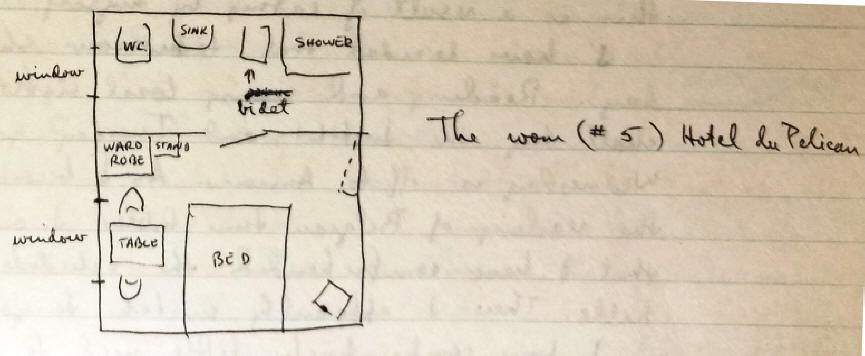 WC
SINK
SHOWER
window
bidet
The room (# 5) Hotel du Pelican
WARD
ROBE
STAND
window
TABLE
BED